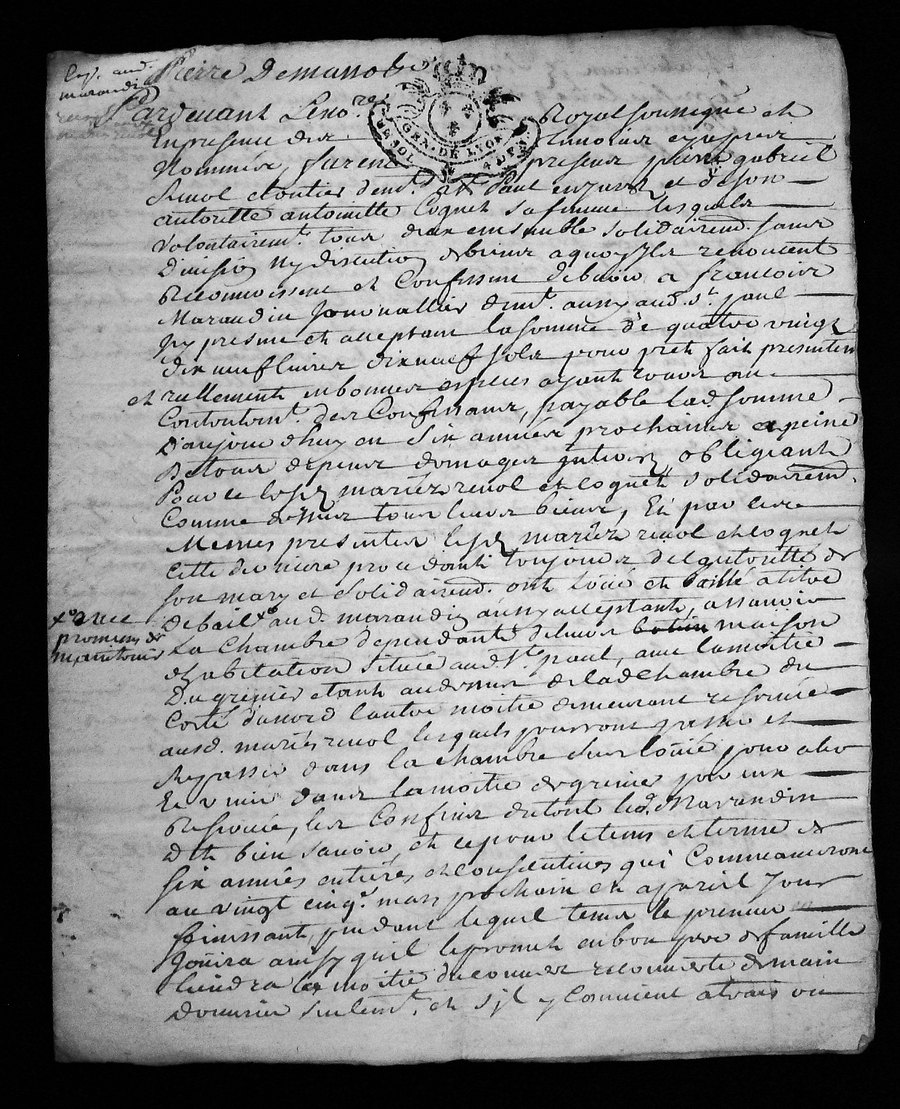 Pierre Demanol
Pardevant Le no.re Royal soussigné et
En presence des temoins cy apres
Nommés, furent presens pierre gabriel
Revol et dem.t St Paul en Jarez et de son
autoritté antoinette Coquet sa femme lesquels
Volontairem.t tous deux ensemble solidairem. sans
Division Ny discution de biens a quoy Ils renoncent
Reconnoissent et Confessent debvoir a francois
Marandin Journallier dem.t aussy aud. St paul
Icy present et acceptant la somme de quatre vingt
dix neuf livres dix neuf sols pour pret fait presentem
et réellement en bonnes especes ayant cours au
Contentem.t des Confessans, payable lad. somme
D'aujourd'huy en six années prochaines a peine
De tous depens domages interets obligeant
Pour ce les d. mariéz revol et Coquet solidairem.
Comme dessus tous leurs biens, Et par ces
Memes presentes les d. mariéz revol et Coquet
Cette derniere procedant toujours de l'autoritté de
son mary et solidairem. ont loüé et baillé a titre
de bail xo aud. marandin aussy acceptant, assavoir
xo avec
promesse de
maintenir
La Chambre dependante de leur maison
d'habitation située aud. St. paul, avec la moitié
Du grenier etant au dessus de lad. chambre du
Coté du nord l'autre moitié demeurant reservée
ausd. mariés revol lesquels pourront passer et
Repasser dans la chambre louée pour aler
Et venir dans la moitié de grenier par eux
Reservée, les Confins du tout led. Marandin
Dit bien savoir et ce pour le tems et terme de
six années entieres et consecutives qui Commenceront
au vingt cinq.e mars prochain et a pareil Jour
finissant, pendant lequel tems le preneur
Joüira ainsy qu'il le promet en bon pere de famille
tiendra la moitié du couvert recouverte de main
D'ouvrier seulem.t, et s'il y Convient a trais ou
GEN. DE LYON